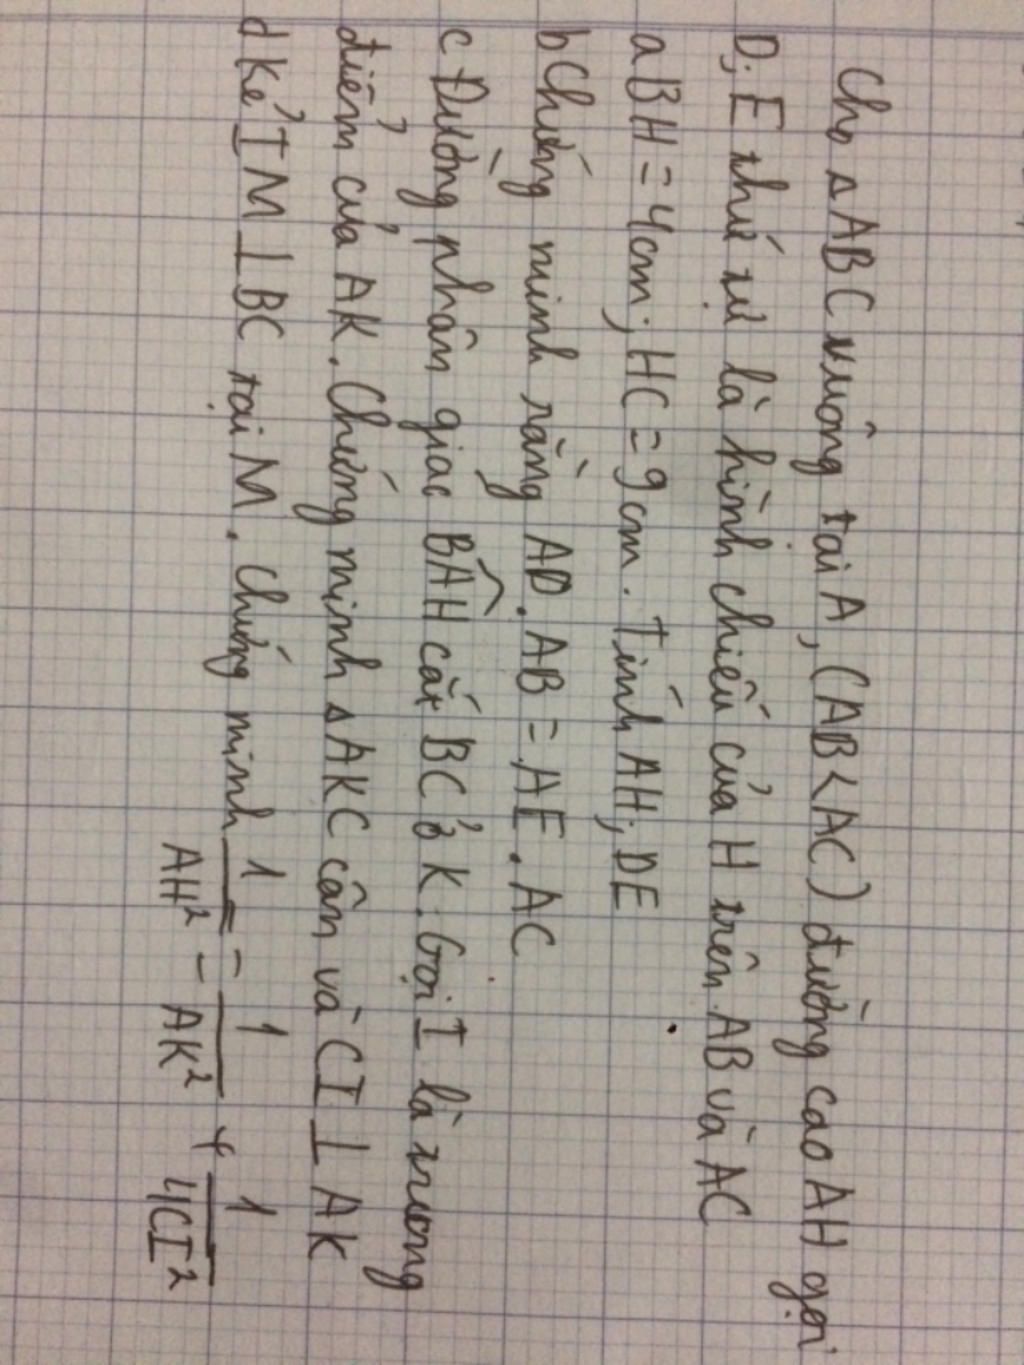 Cho ΔABC vuông tại A, (AB<AC) đường cao AH gọi
D; E thứ tự là hình chiếu của H trên AB và AC
a BH = 4cm; HC = 9cm. Tính AH; DE
b Chứng minh rằng AD.AB = AE.AC
c Đường phân giác BÂH cắt BC ở K. Gọi I là trung
điểm của AK. Chứng minh ΔAKC cân và CI ⊥ AK
d Kẻ IM ⊥ BC tại M. Chứng minh 1/AH² = 1/AK² + 1/4CI²